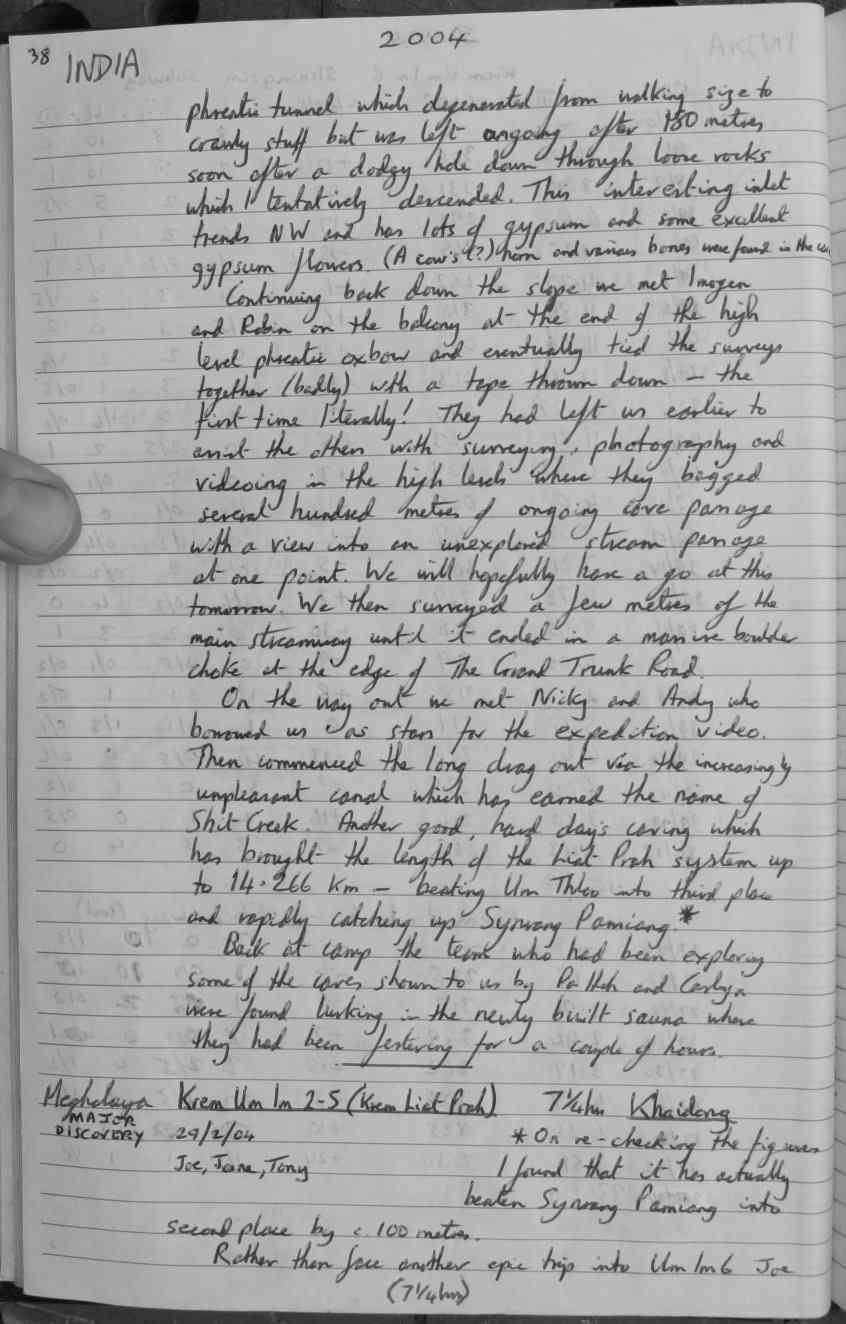 38
INDIA
2004
phreatic tunnel which degenerated from walking size to
crawly stuff but was left ongoing after 180 metres
soon after a dodgy hole down through loose rocks
which I tentatively descended. This interesting inlet
trends NW and has lots of gypsum and some excellent
gypsum flowers. (A cow's (?) horn and various bones were found in the
Continuing back down the slope we met Imogen
and Robin on the balcony at the end of the high
level phreatic oxbow and eventually tied the surveys
together (badly) with a tape thrown down – the
first time literally! They had left us earlier to
assist the others with surveying, photography and
videoing in the high levels where they bagged
several hundred metres of ongoing cave passage
with a view into an unexplored stream passage
at one point. We will hopefully have a go at this
tomorrow. We then surveyed a few metres of the
main streamway until it ended in a massive boulder
choke at the edge of The Grand Trunk Road.
On the way out we met Nicky and Andy who
borrowed us as stars for the expedition video.
Then commenced the long drag out via the increasingly
unpleasant canal which has earned the name of
Shit Creek. Another good, hard day's caving which
has brought the length of the Liat Prah system up
to 14.266 Km – beating Um Thloo into third place
and rapidly catching up Synrang Pamiang.*
Back at camp the team who had been exploring
some of the caves shown to us by Pa Heh and Carlyn
were found lurking in the newly built sauna where
they had been festering for a couple of hours.
Meghalaya Krem Um Im 2-5 (Krem Liat Prah) 7¼hrs Khaidong
MAJOR
DISCOVERY 29/2/04
* On re-checking the figures
Joe, Jayne, Tony
I found that it has actually
beaten Synrang Pamiang into
second place by c. 100 metres.
Rather than face another epic trip into Um Im 6 Joe
(7¼hrs)